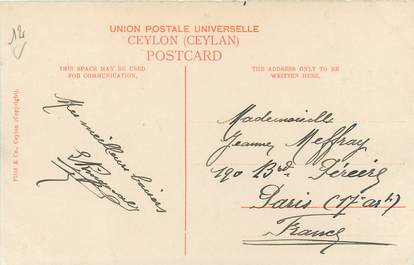 12
UNION POSTALE UNIVERSELLE
CEYLON (CEYLAN)
POSTCARD
THIS SPACE MAY BE USED
FOR COMMUNICATION.
THE ADDRESS ONLY TO BE
WRITTEN HERE.
Plâté & Co., Ceylon (Copyright).
Mes meilleurs baisers
Mademoiselle
Jeanne Meffray
190 Bard Péreire
Paris (17e art)
France